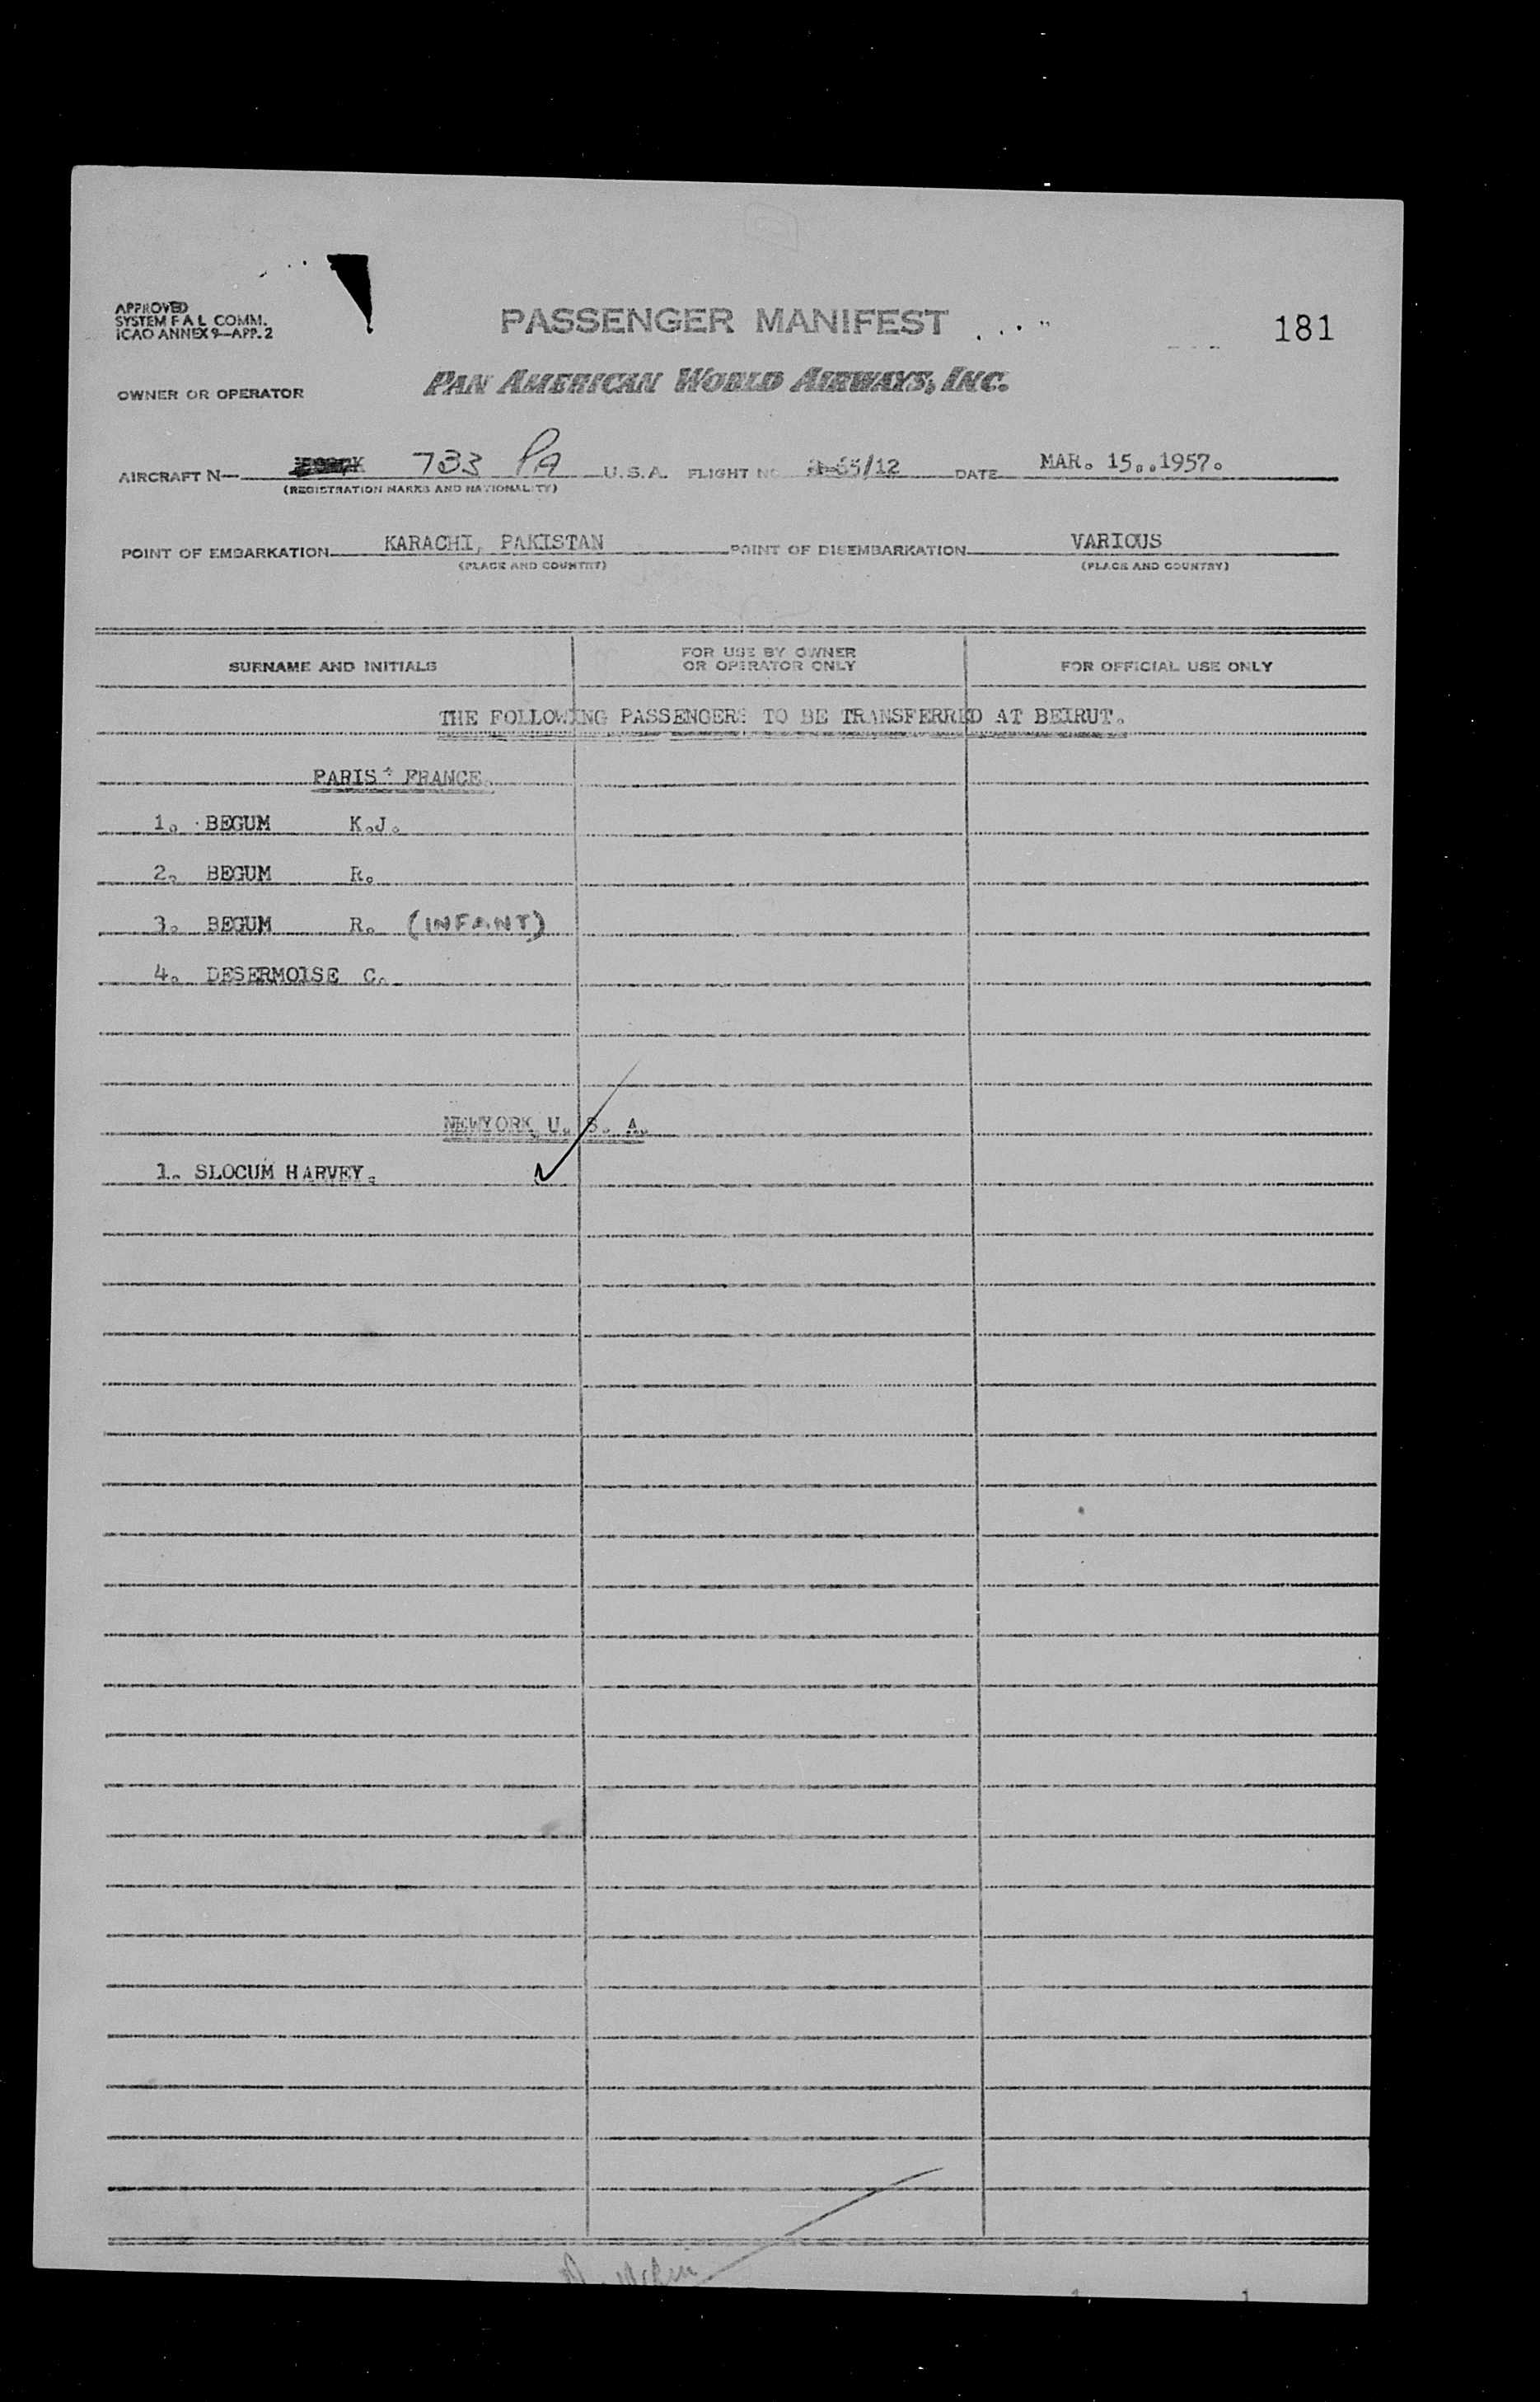 APPROVED
SYSTEM F A L COMM.
ICAO ANNEX 9—APP. 2
PASSENGER MANIFEST
181
OWNER OR OPERATOR
PAN AMERICAN WORLD AIRWAYS, INC.
AIRCRAFT N— 733 PA U.S.A. FLIGHT NO 65/12 DATE MAR. 15..1957.
(REGISTRATION MARKS AND NATIONALITY)
POINT OF EMBARKATION KARACHI, PAKISTAN POINT OF DISEMBARKATION VARIOUS
(PLACE AND COUNTRY) (PLACE AND COUNTRY)
SURNAME AND INITIALS FOR USE BY OWNER OR OPERATOR ONLY FOR OFFICIAL USE ONLY
THE FOLLOWING PASSENGERS TO BE TRANSFERRED AT BEIRUT.
PARIS FRANCE.
1. BEGUM K.J.
2. BEGUM R.
3. BEGUM R. (INFANT)
4. DESERMOISE C.
NEWYORK, U. S. A.
1. SLOCUM HARVEY.